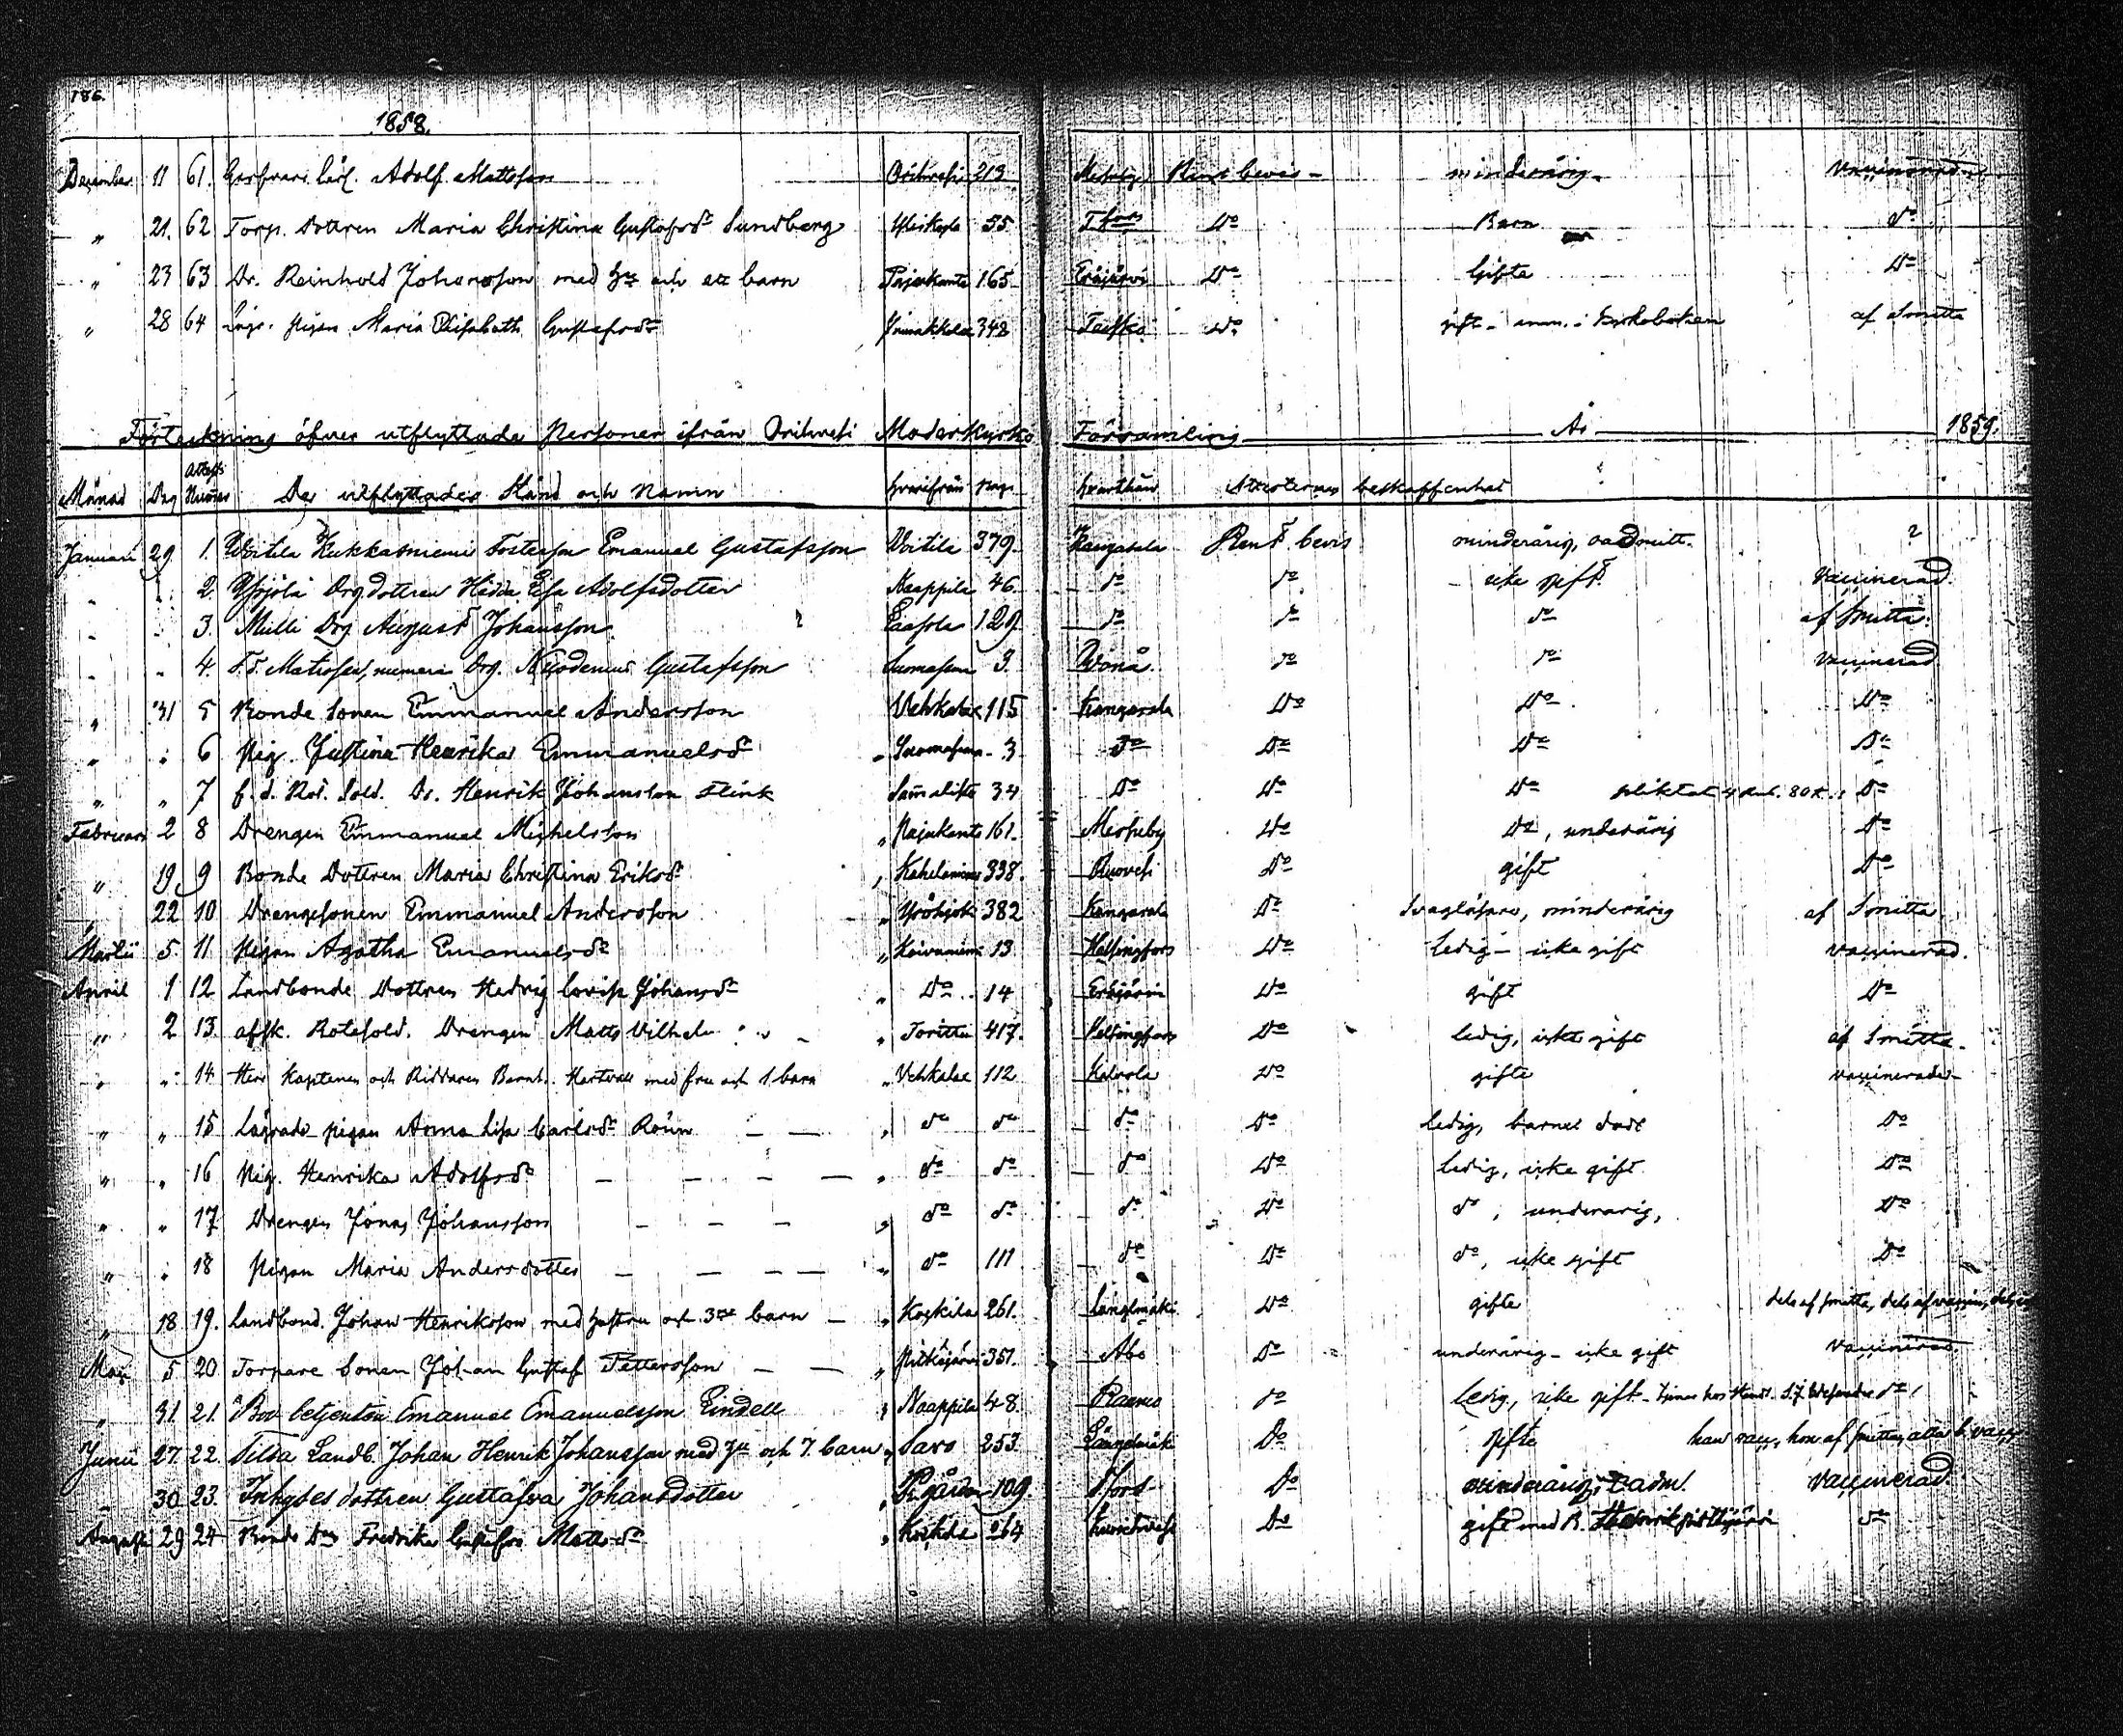 186.
1858.
December 11 61. Adolf Mattsson Orihvesi 213 Rent bevis minderårig. Vaccinerad
" 21. 62 Torp. Dottren Maria Christina Gustafsdr Sundberg Yliskylä 55 Tfors Do Barn do
" 23 63 Dr. Reinhold Johansson med hu och ett barn Pajukanta 165 Eräjärvi Do Gifte Do
" 28 64 pigan Maria Elisabeth Gustafsdr 348 Teisko Do gift i af Smitta
Förteckning öfver utflyttade Personer ifrån Orihvesi Moderkyrko Församling År 1859.
Månad Dag Attests Num̄er De utflyttades Stånd och Namn hvarifrån pag. hvarthän Attesternes beskaffenhet
Januari 29 1. Voitila Kukkasniemi Emanuel Gustafsson Voitila 379. Kangasala Rent bevis minderårig, oadmitt. ?
" " 2. Yröjölä Drg dottren Hedda Efa Adolfsdotter Naappila 46. do do icke gift. Vaccinerad.
" " 3. Mülli Drg August Johansson 129 do do do af Smitta.
" " 4. F.d. Matrosen, numera Drg. Nikodemus Gustafsson 3. Vånå. do do Vaccinerad
" 31 5 Bonde Sonen Emmanuel Andersson Vehkalax 115 Kangasala Do Do Do
" " 6 Pig. Justina Henrika Emmanuelsdr " 3 Do Do Do Do
" " 7 f.d. Rot. Sold. Dr. Henrik Johansson Flink 34 Do Do Do pliktat 4 Rub. 80 K. Do
Februari 2 8 Drengen Emmanuel Michelsson " Pajukanta 161. Messuby Do Do, underårig Do
" 19 9 Bonde Dottren Maria Christina Eriksdr " 338. Ruovesi Do gift Do
" 22 10 Drengesonen Emmanuel Andersson " 382 Kangasala Do Svagläsare, minderårig af Smitta
Martii 5 11 Pigan Agatha Emanuelsdr " Koivuniemi 13 Helsingfors Do Ledig – icke gift vaccinerad.
April 1 12 Landbonde Dottren Hedvig Lovisa Johansdr " Do 14 Eräjärvi Do gift Do
" 2 13. afsk. Rotesold. Drengen Matts Vilhelm " Torittu 417. Helsingfors Do ledig, icke gift af Smitta.
" " 14 Herr Kaptenen och Riddaren Bernh. Hartvall med fru och 1 barn " Vehkalax 112 Kalvola Do gifte vaccinerade
" " 15 pigan Anna Lisa Carlsdr — — " do do do Do Ledig, barnet dödt Do
" " 16 Pig. Henrika Adolfsdr — — — — " do do do Do ledig, icke gift Do
" " 17 Drengen Jonas Johansson — — — " do do do Do do, underårig, Do
" " 18 Pigan Maria Andersdotter — — — — " do 111 do Do do, icke gift Do
" 18 19. Landbond. Johan Henriksson med hustru och 3ne barn — " Koskila 261. Längelmäki Do gifte dels af Smitta, dels af vaccin,
Maji 5 20 Torpare Sonen Johan Gustaf Pettersson — — " Pitkäjärvi 351. Åbo Do underårig – icke gift Vaccinerad
" 31. 21. Bod betjenten Emanuel Emanuelsson Lindell " Naappila 48. Raumo do Ledig, icke gift. do
Junii 27. 22. Landb. Johan Henrik Johansson med hu och 7. barn " Savo 253. Längelmäki Do gifte han vacc, hon af smitta,
" 30 23. Inhyses dottren Gustafva Johansdotter " 109. Tfors Do minderårig, vaccinerad.
Augusti 29 24 Bonde Dr Fredrika Gustafva Mattsdr " Koskela 264 Do gift med B. do